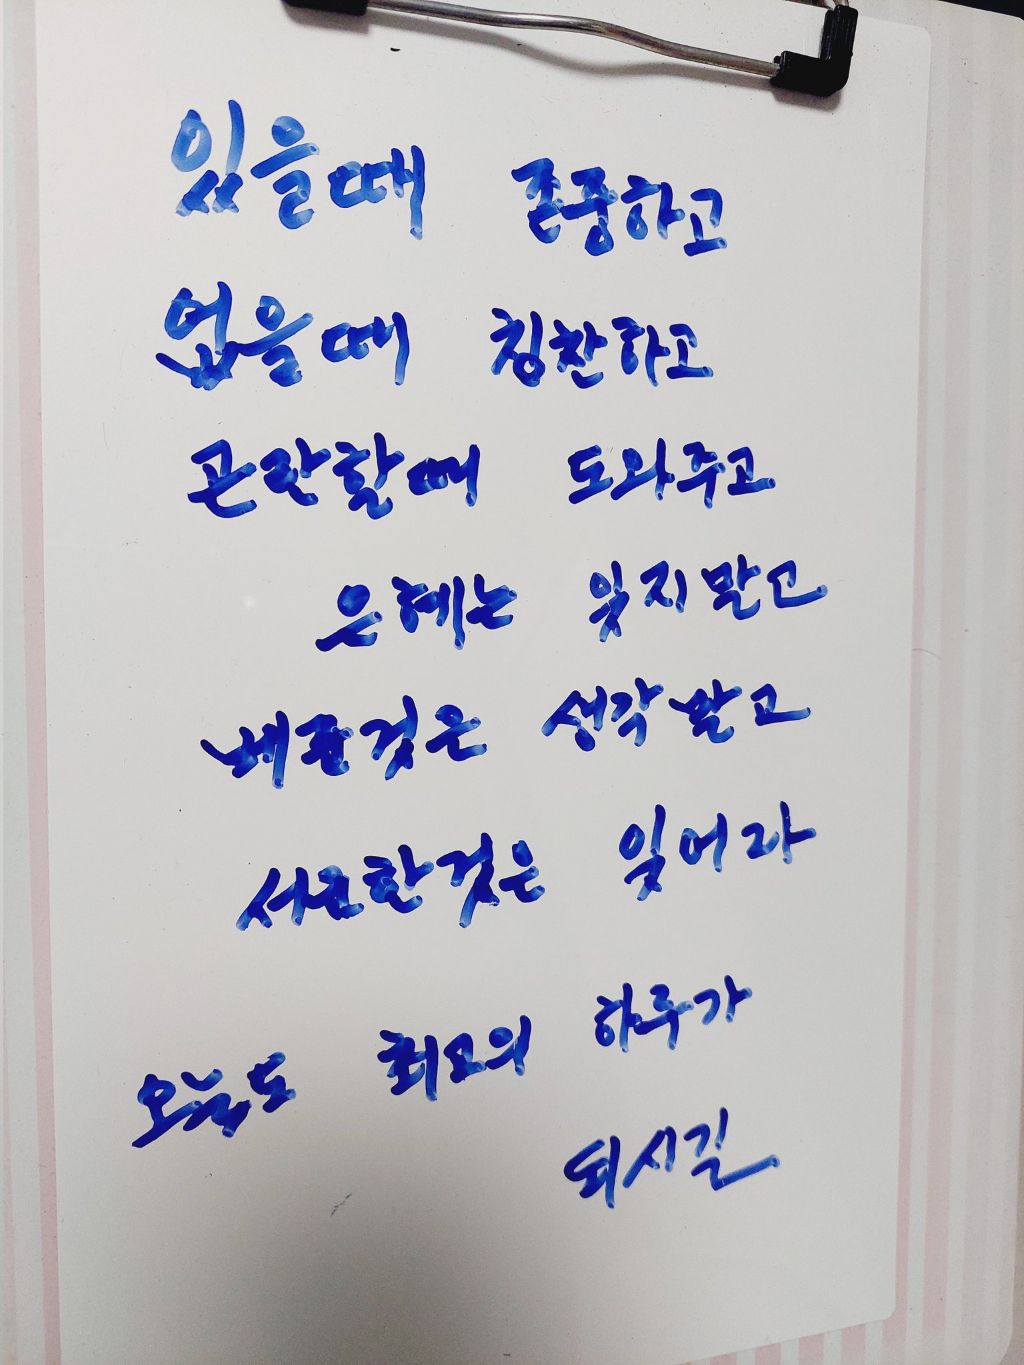 있을때 존중하고
없을때 칭찬하고
곤란할때 도와주고
은혜는 잊지말고
베푼것은 생각말고
서운한것은 잊어라
오늘도 최고의 하루가
되시길